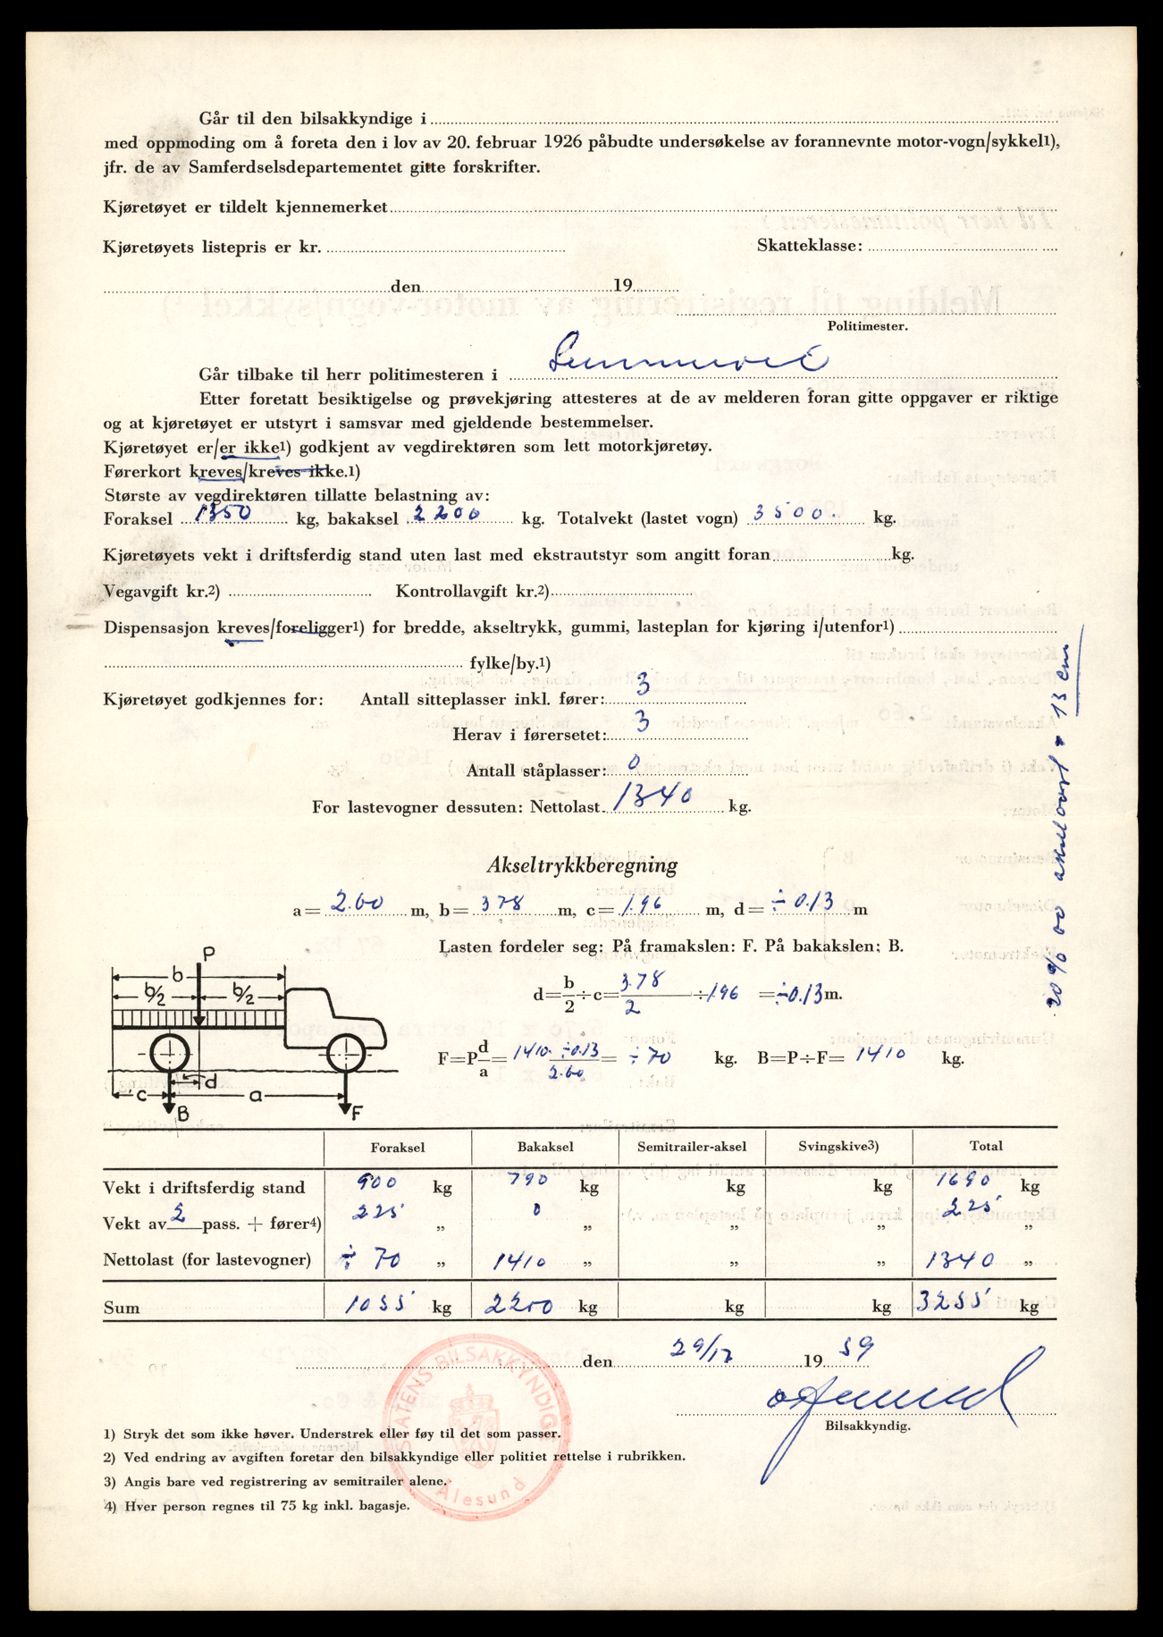 Går til den bilsakkyndige i
med oppmoding om å foreta den i lov av 20. februar 1926 påbudte undersøkelse av forannevnte motor-vogn/sykkel1),
jfr. de av Samferdselsdepartementet gitte forskrifter.
Kjøretøyet er tildelt kjennemerket
Kjøretøyets listepris er kr. Skatteklasse:
den 19
Politimester.
Går tilbake til herr politimesteren i
Etter foretatt besiktigelse og prøvekjøring attesteres at de av melderen foran gitte oppgaver er riktige
og at kjøretøyet er utstyrt i samsvar med gjeldende bestemmelser.
Kjøretøyet er/er ikke1) godkjent av vegdirektøren som lett motorkjøretøy.
Førerkort kreves/kreves ikke.1)
Største av vegdirektøren tillatte belastning av:
Foraksel 1350 kg, bakaksel 2200 kg. Totalvekt (lastet vogn) 3500. kg.
Kjøretøyets vekt i driftsferdig stand uten last med ekstrautstyr som angitt foran kg.
Vegavgift kr.2) Kontrollavgift kr.2)
Dispensasjon kreves/foreligger1) for bredde, akseltrykk, gummi, lasteplan for kjøring i/utenfor1)
fylke/by.1)
Kjøretøyet godkjennes for: Antall sitteplasser inkl. fører: 3
Herav i førersetet: 3
Antall ståplasser: 0
For lastevogner dessuten: Nettolast 1340 kg.
Akseltrykkberegning
a= 2.60 m, b= 378 m, c= 1.96 m, d= ÷ 0.13 m
Lasten fordeler seg: På framakslen: F. På bakakslen: B.
P
b
b/2 b/2
d= b/2 ÷c= 3.78/2 ÷1.96 =÷0.13 m.
F=P d/a = 1410 ÷0.13/2.60 = ÷ 70 kg. B=P÷F= 1410 kg.
d
c a
B F
Foraksel Bakaksel Semitrailer-aksel Svingskive3) Total
Vekt i driftsferdig stand 900 kg 790 kg kg kg 1690 kg
Vekt av 2 pass. + fører4) 225 „ 0 „ „ „ 225 „
Nettolast (for lastevogner) ÷ 70 „ 1410 „ „ „ 1340 „
Sum 1055 kg 2200 kg kg kg 3255 kg
den 29/12 1959
Bilsakkyndig.
STATENS BILSAKKYNDIGE
Ålesund
1) Stryk det som ikke høver. Understrek eller føy til det som passer.
2) Ved endring av avgiften foretar den bilsakkyndige eller politiet rettelse i rubrikken.
3) Angis bare ved registrering av semitrailer alene.
4) Hver person regnes til 75 kg inkl. bagasje.
13 cm